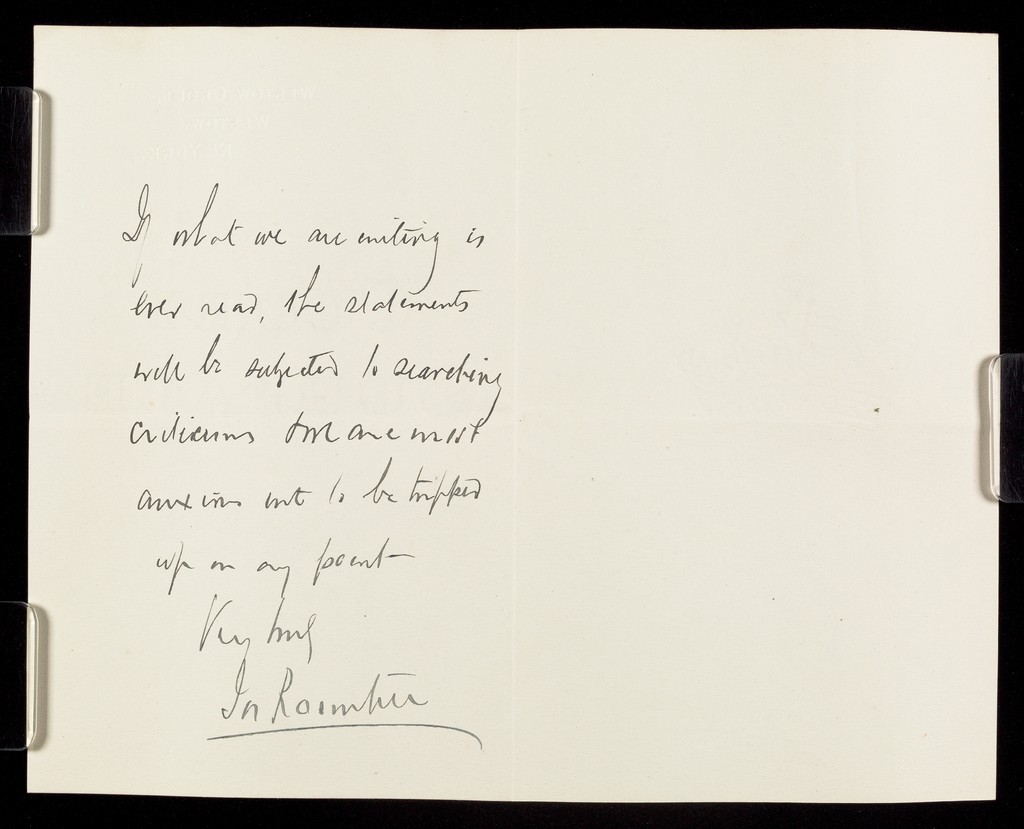 If what we are writing is
ever read, the statements
will be subjected to searching
criticisms & we are most
anxious not to be tripped
up on any point
Very truly
Jos Rowntree